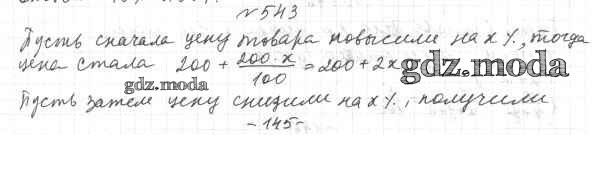 №543
Пусть сначала цену товара повысили на x %, тогда
цена стала 200 + 200·x/100 = 200 + 2x
gdz.moda
gdz.moda
Пусть затем цену снизили на x %, получили
-145-